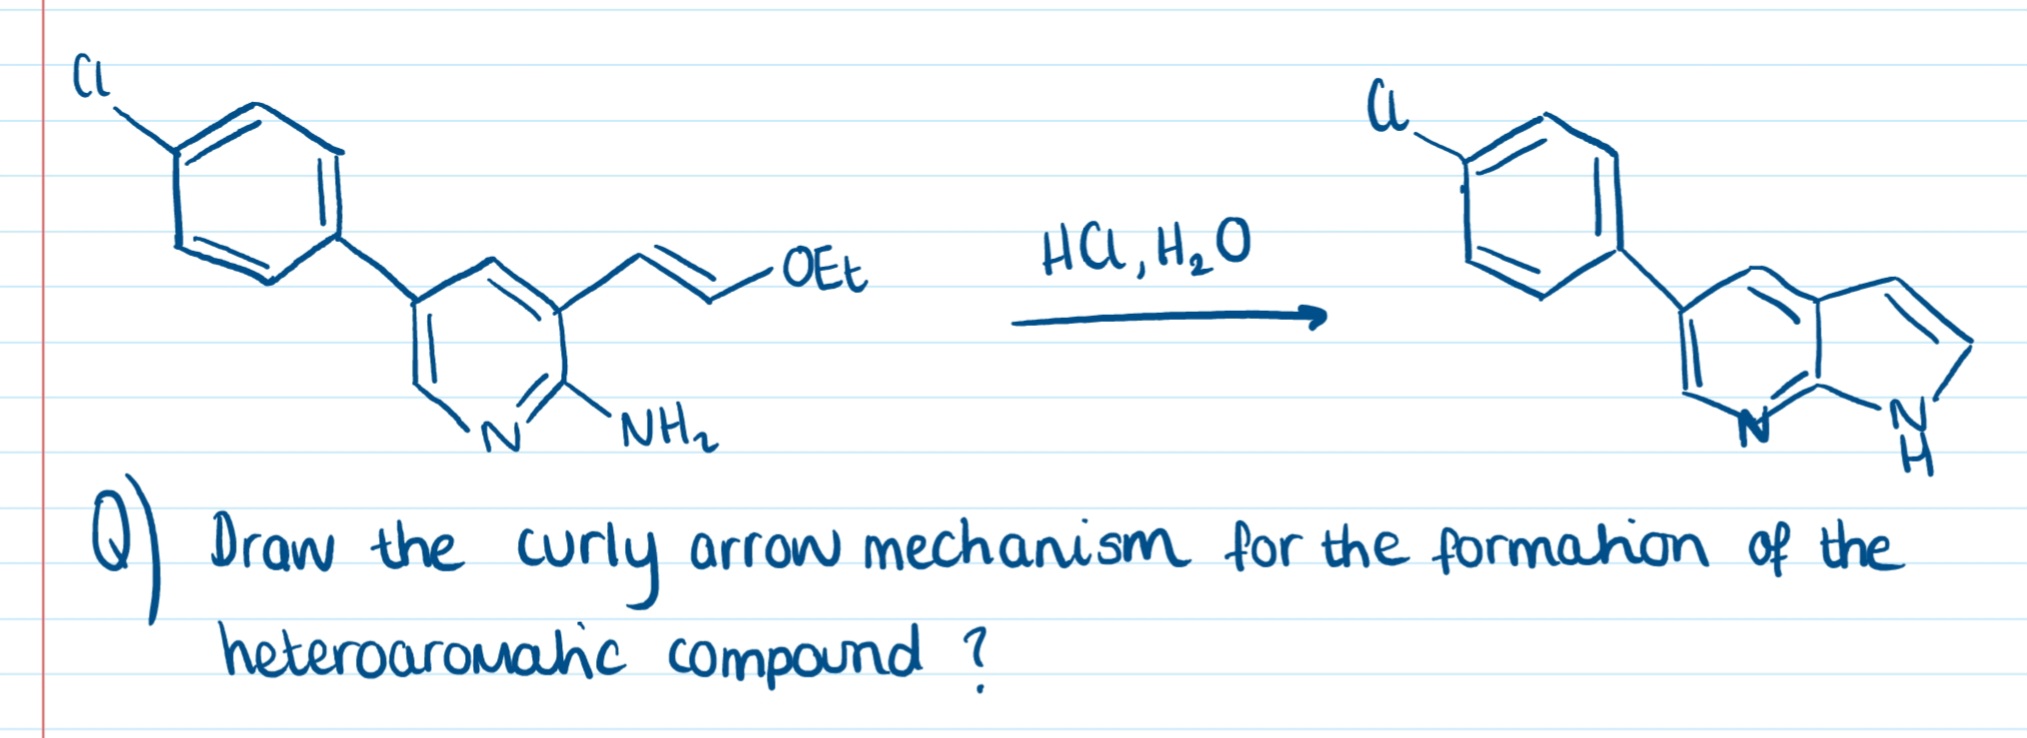 Cl
Cl
OEt
HCl, H₂O
N
NH₂
N
N
H
Q) Draw the curly arrow mechanism for the formation of the
heteroaromatic compound ?